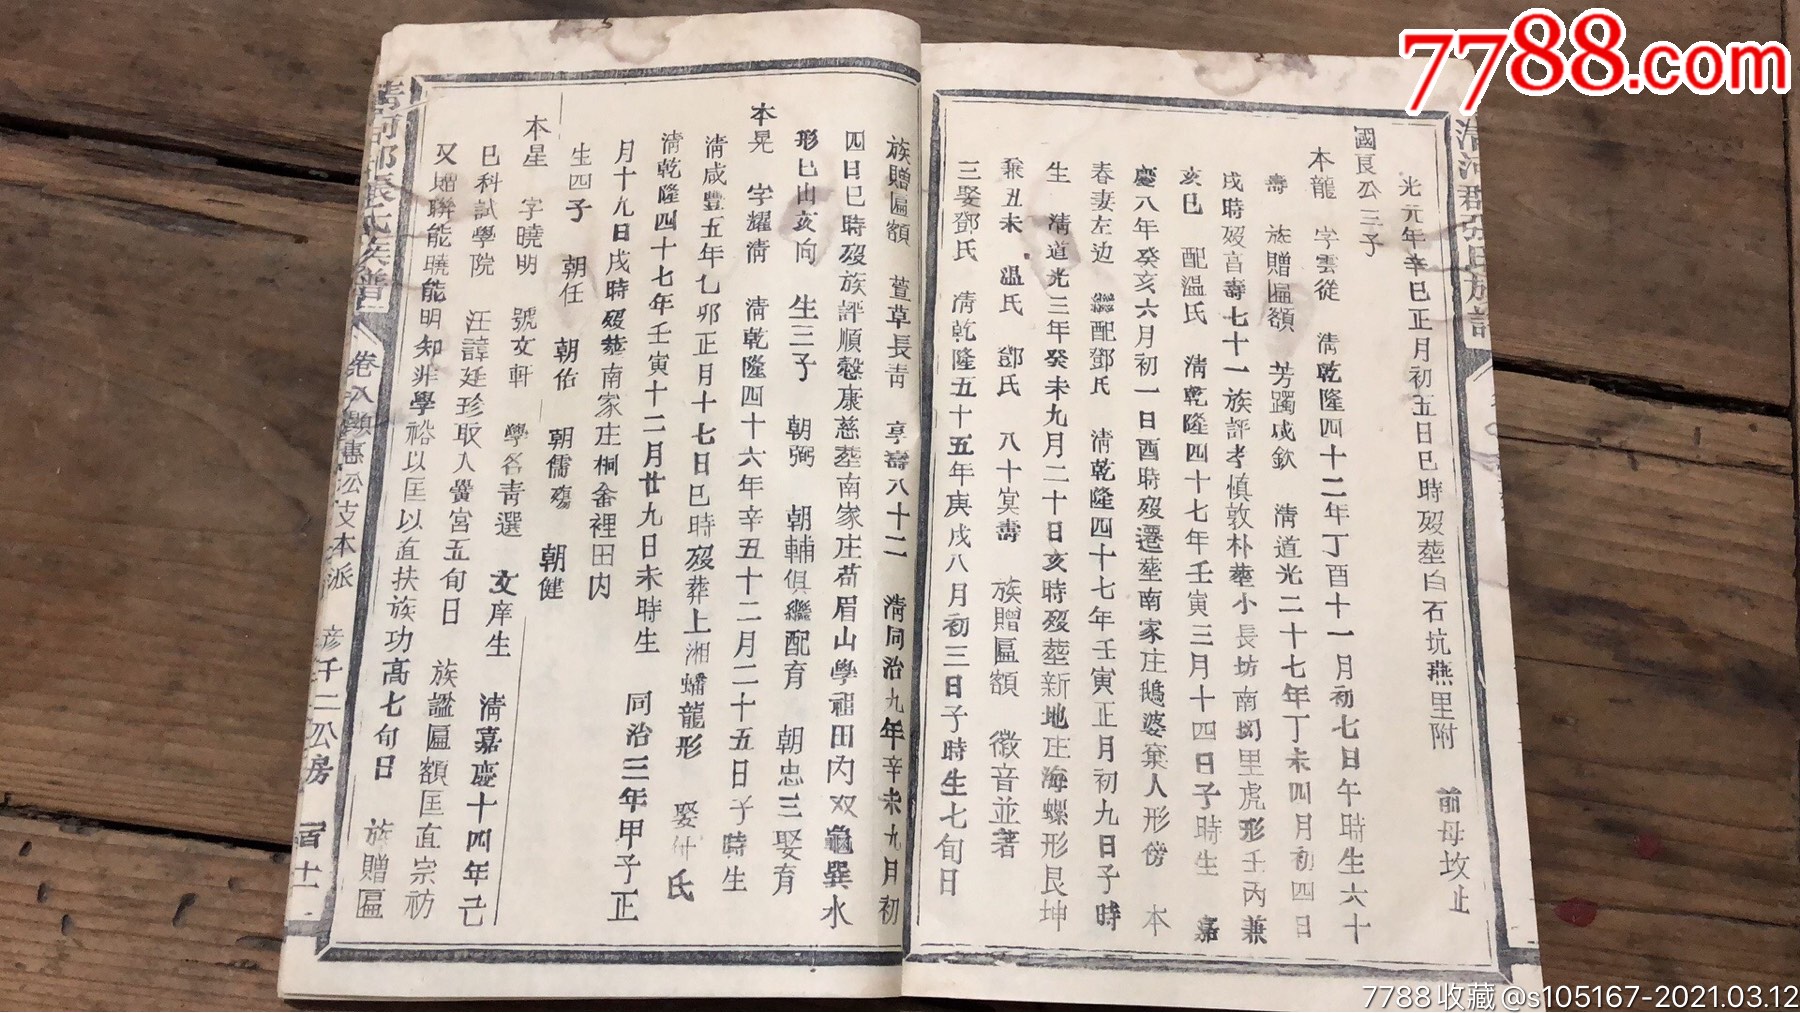 7788.com
清河郡張氏族譜
光元年辛巳正月初五日巳時歿塟白石坑燕里附 前母坟止
國良公三子
本龍 字雲從 清乾隆四十二年丁酉十一月初七日午時生六十
壽 族贈匾額 芳躅成欽 清道光二十七年丁未四月初四日
戌時歿亯壽七十一族評考慎敦朴塟小長坊南坳里虎形壬丙兼
亥巳 配溫氏 清乾隆四十七年壬寅三月十四日子時生 嘉
慶八年癸亥六月初一日酉時歿遷塟南家庄鵝婆棄人形傍 本
春妻左边 繼配鄧氏 清乾隆四十七年壬寅正月初九日子時
生 清道光三年癸未九月二十日亥時歿塟新地庄海螺形艮坤
兼丑未 溫氏 鄧氏 八十冥壽 族贈匾額 徵音並著
三娶鄧氏 清乾隆五十五年庚戌八月初三日子時生七旬日
族贈匾額 萱草長青 享壽八十二 清同治九年辛未九月初
四日巳時歿族評順慤康慈塟南家庄苟眉山學祖田內双龜巽水
形巳山亥向 生三子 朝弼 朝輔俱繼配育 朝忠三娶育
本晃 字耀清 清乾隆四十六年辛丑十二月二十五日子時生
清咸豐五年乙卯正月十七日巳時歿葬上湘蟠龍形 娶付氏
清乾隆四十七年壬寅十二月廿九日未時生 同治三年甲子正
月十九日戌時歿塟南家庄桐畬裡田内
生四子 朝任 朝佑 朝儒殤 朝健
本星 字曉明 號文軒 學名青選 文庠生 清嘉慶十四年己
巳科試學院 汪諱廷珍取入黌宮五旬日 族諡匾額匡直宗祊
又堦聯能曉能明知非學裕以匡以直扶族功高七旬日 族贈匾
清河郡張氏族譜 卷八顯惠公支本派 彦千二公房 一百十一
7788收藏@s105167-2021.03.12